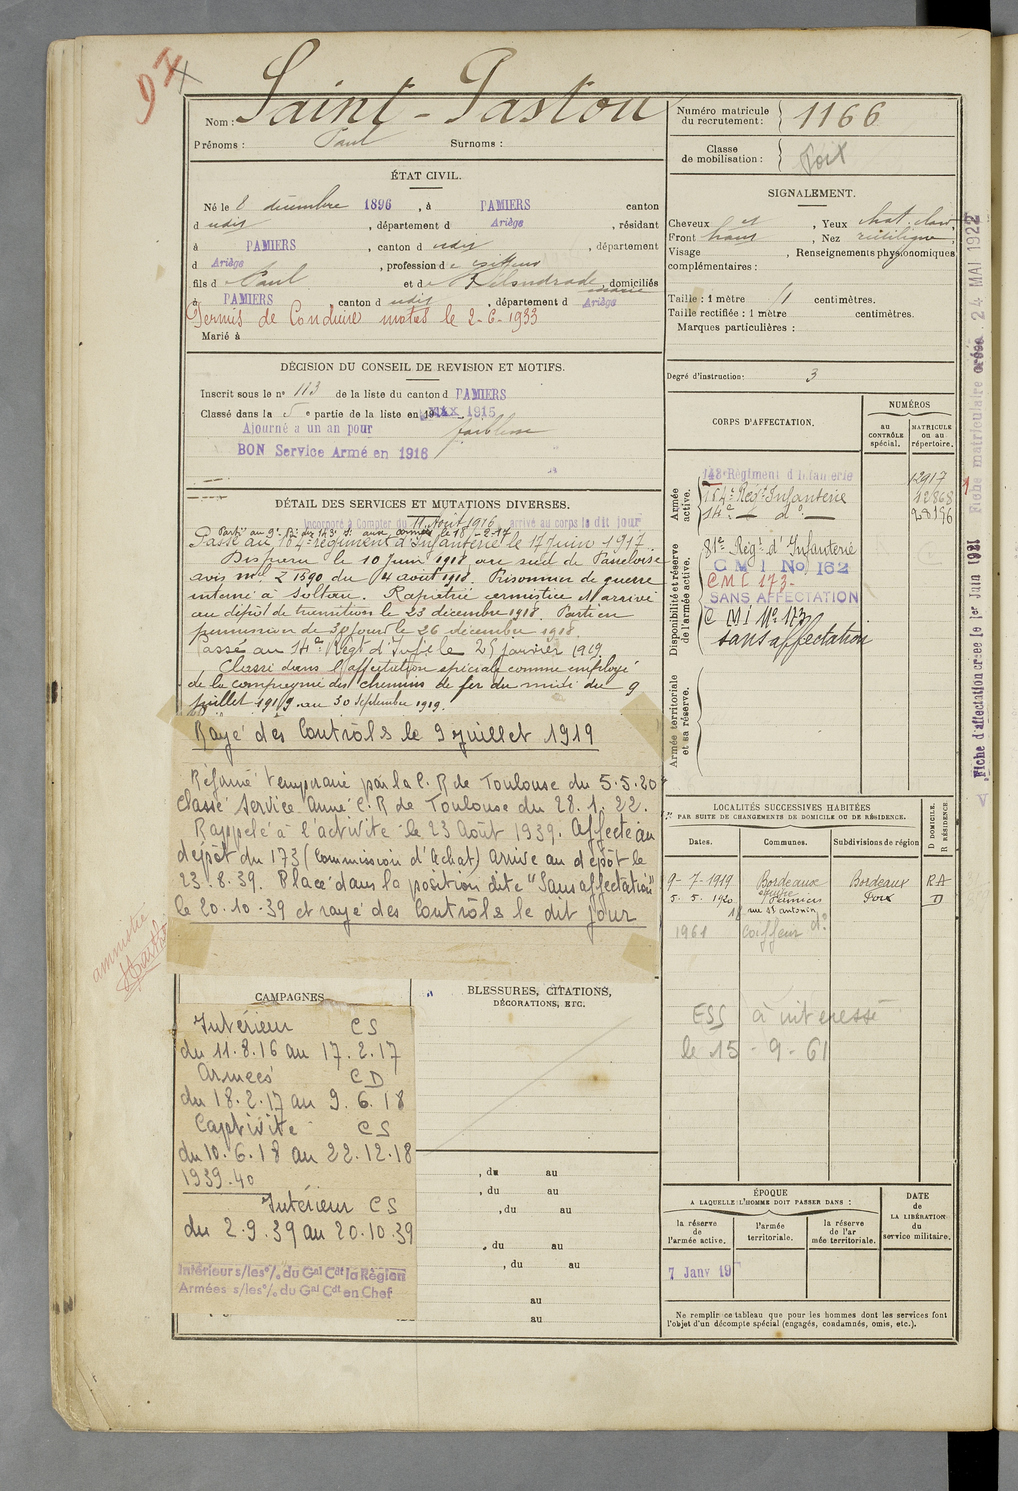 97
Nom : Saint-Gaston
Prénoms : Paul Surnoms :
Numéro matricule du recrutement : 1166
Classe de mobilisation : Foix
ÉTAT CIVIL.
Né le 8 décembre 1896, à PAMIERS canton
d udit, département d Ariège, résidant
à PAMIERS, canton d udit, département
d Ariège, profession de coiffeur
fils d e Paul et de, domiciliés
à PAMIERS, canton d udit, département d Ariège
Permis de Conduire motos le 2-6-1933
Marié à
SIGNALEMENT.
Cheveux, Yeux chat. clair
Front haut, Nez rectiligne
Visage, Renseignements physionomiques
complémentaires :
Taille : 1 mètre 71 centimètres.
Taille rectifiée : 1 mètre centimètres.
Marques particulières :
Degré d'instruction : 3
DÉCISION DU CONSEIL DE REVISION ET MOTIFS.
Inscrit sous le n° 113 de la liste du canton d PAMIERS
Classé dans la 5e partie de la liste en 1915
Ajourné a un an pour faiblesse
BON Service Armé en 1916
DÉTAIL DES SERVICES ET MUTATIONS DIVERSES.
Incorporé à Compter du 11 Août 1916 arrivé au corps le dit jour
Parti au 9e Bn du 143e I. aux armées le 18-2-17
Passé au 164e régiment d'Infanterie le 17 Juin 1917.
Disparu le 10 Juin 1918 au sud de
avis mel Z 1590 du 4 août 1918. Prisonnier de guerre
interné à Soltau. Rapatrié armistice et arrivé
au dépôt de transition le 23 décembre 1918. Parti en
permission de 30 jours le 26 décembre 1918.
Passé au 14e Régt d'Infie le 25 janvier 1919
Classé dans l'affectation spéciale comme employé
de la compagnie des chemins de fer du midi du 9
juillet 1919 au 30 septembre 1919.
Rayé des Contrôls le 9 juillet 1919
Réformé temporaire par la C. R de Toulouse du 5.5.20
Classé Service Armé C. R de Toulouse du 28.1.22.
Rappelé à l'activité le 23 Août 1939. Affecté au
dépôt du 173 (Commission d'Achat) Arrivé au dépôt le
23.8.39. Placé dans la position dite "Sans affectation"
le 20.10.39 et rayé des Contrôls le dit jour
amnistié
CORPS D'AFFECTATION.
NUMÉROS
au CONTRÔLE spécial.
MATRICULE ou au répertoire.
Armée active.
143e Régiment d'Infanterie 12917
164e Régt Infanterie 12868
14e — do — 29196
Disponibilité et réserve de l'armée active.
81e Régt d'Infanterie
C M I No 162
CMI 173-
SANS AFFECTATION
C MI No 173
sans affectation
Armée territoriale et sa réserve.
Fiche matriculaire créée 24 MAI 1922
Fiche d'affectation créée le 1er Juin 1921
LOCALITÉS SUCCESSIVES HABITÉES
PAR SUITE DE CHANGEMENTS DE DOMICILE OU DE RÉSIDENCE.
Dates. Communes. Subdivisions de région
D DOMICILE. R RÉSIDENCE
9-7-1919 Bordeaux Bordeaux RA
5.5.1920 Pamiers Foix D
rue St antonin
1961 Coiffeur do
ESS à intéressé
le 15-9-61
CAMPAGNES
Intérieur CS
du 11.8.16 au 17.2.17
Armées CD
du 18.2.17 au 9.6.18
Captivité CS
du 10.6.18 au 22.12.18
1939.40
Intérieur CS
du 2.9.39 au 20.10.39
Intérieur s/les o/. du Gal Cdt la Région
Armées s/les o/. du Gal Cdt en Chef
BLESSURES, CITATIONS,
DÉCORATIONS, ETC.
, du au
, du au
, du au
, du au
, du au
au
au
ÉPOQUE
A LAQUELLE L'HOMME DOIT PASSER DANS :
la réserve de l'armée active.
l'armée territoriale.
la réserve de l'armée territoriale.
DATE de LA LIBÉRATION du service militaire.
7 Janv 19
Ne remplir ce tableau que pour les hommes dont les services font
l'objet d'un décompte spécial (engagés, condamnés, omis, etc.).